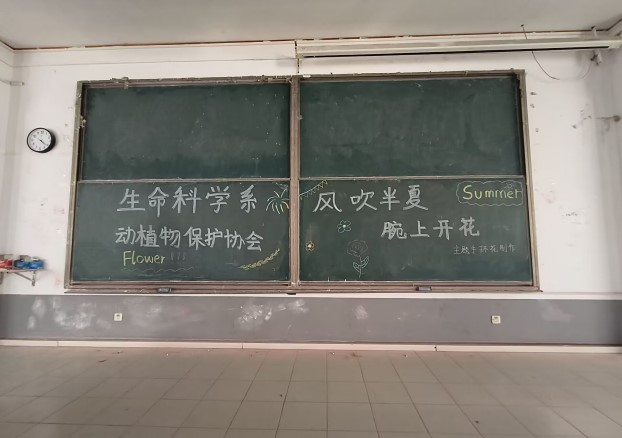 生命科学系
动植物保护协会
Flower!!!
风吹半夏
Summer
腕上开花
主题手环花制作